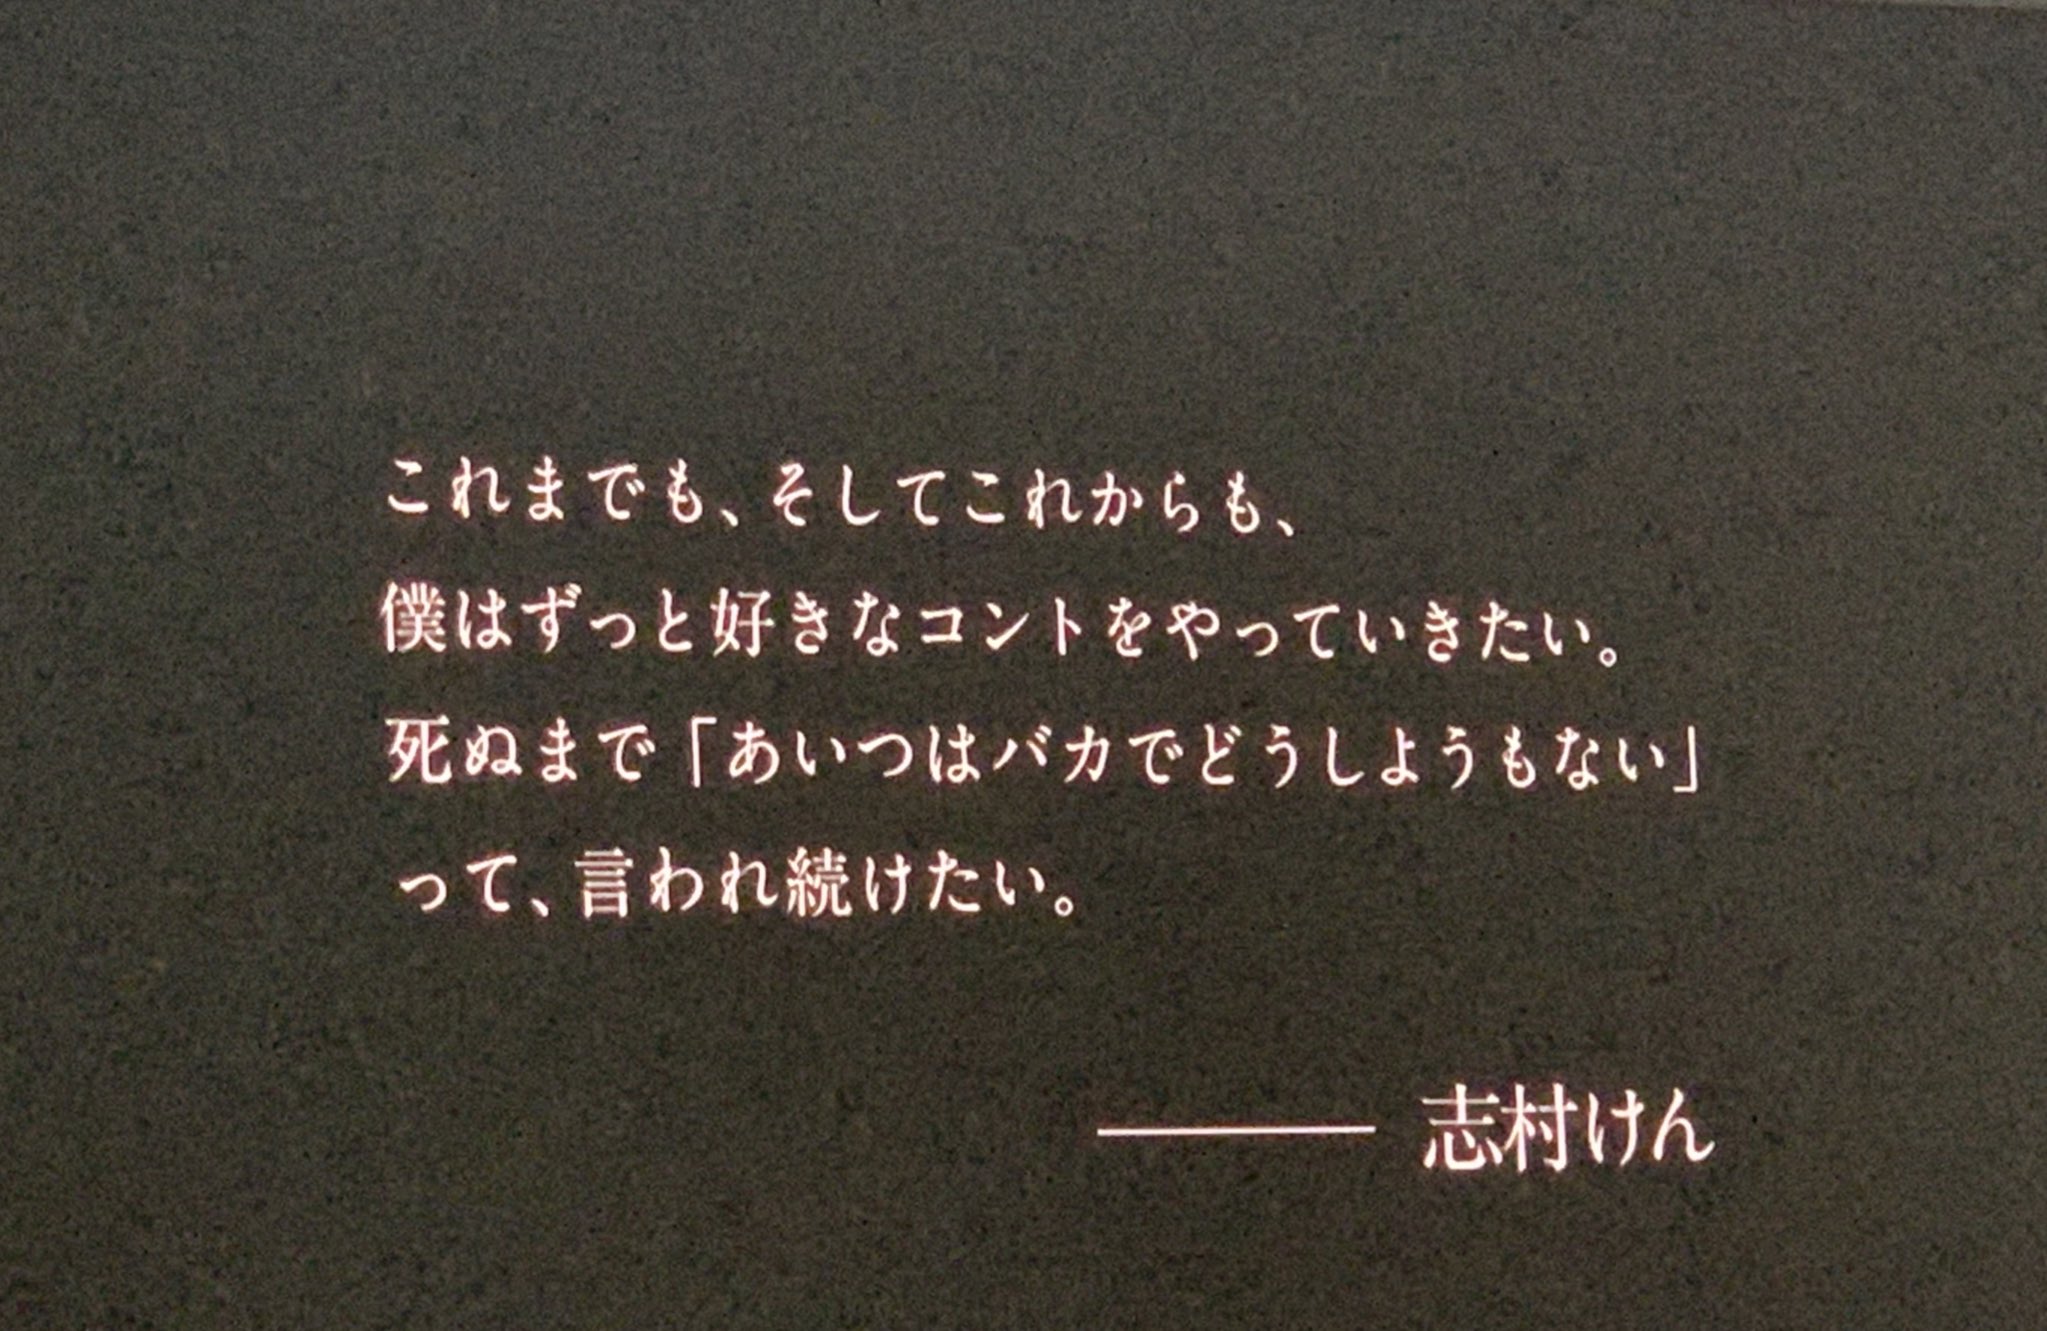 これまでも、そしてこれからも、
僕はずっと好きなコントをやっていきたい。
死ぬまで「あいつはバカでどうしようもない」
って、言われ続けたい。
—— 志村けん